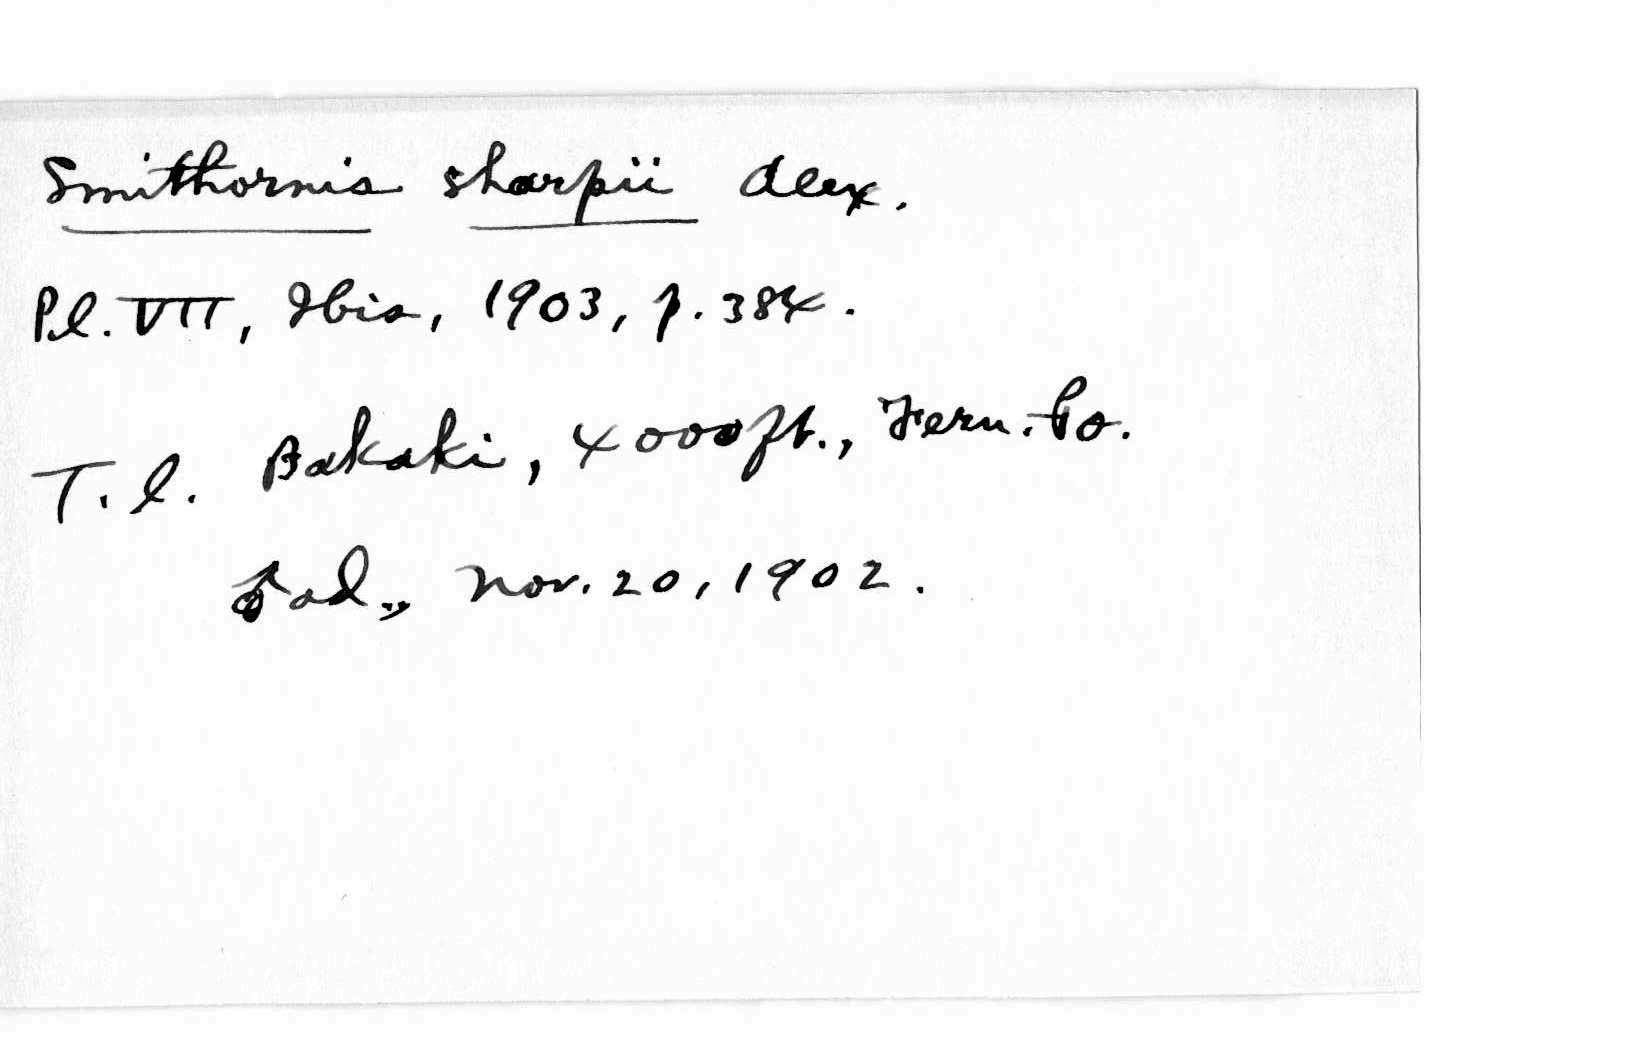 Smithornis sharpii Alex.
Pl. VII, Ibis, 1903, p. 384.
T. l. Bakaki, 4000 ft., Fern. Po.
♂ ad., Nov. 20, 1902.